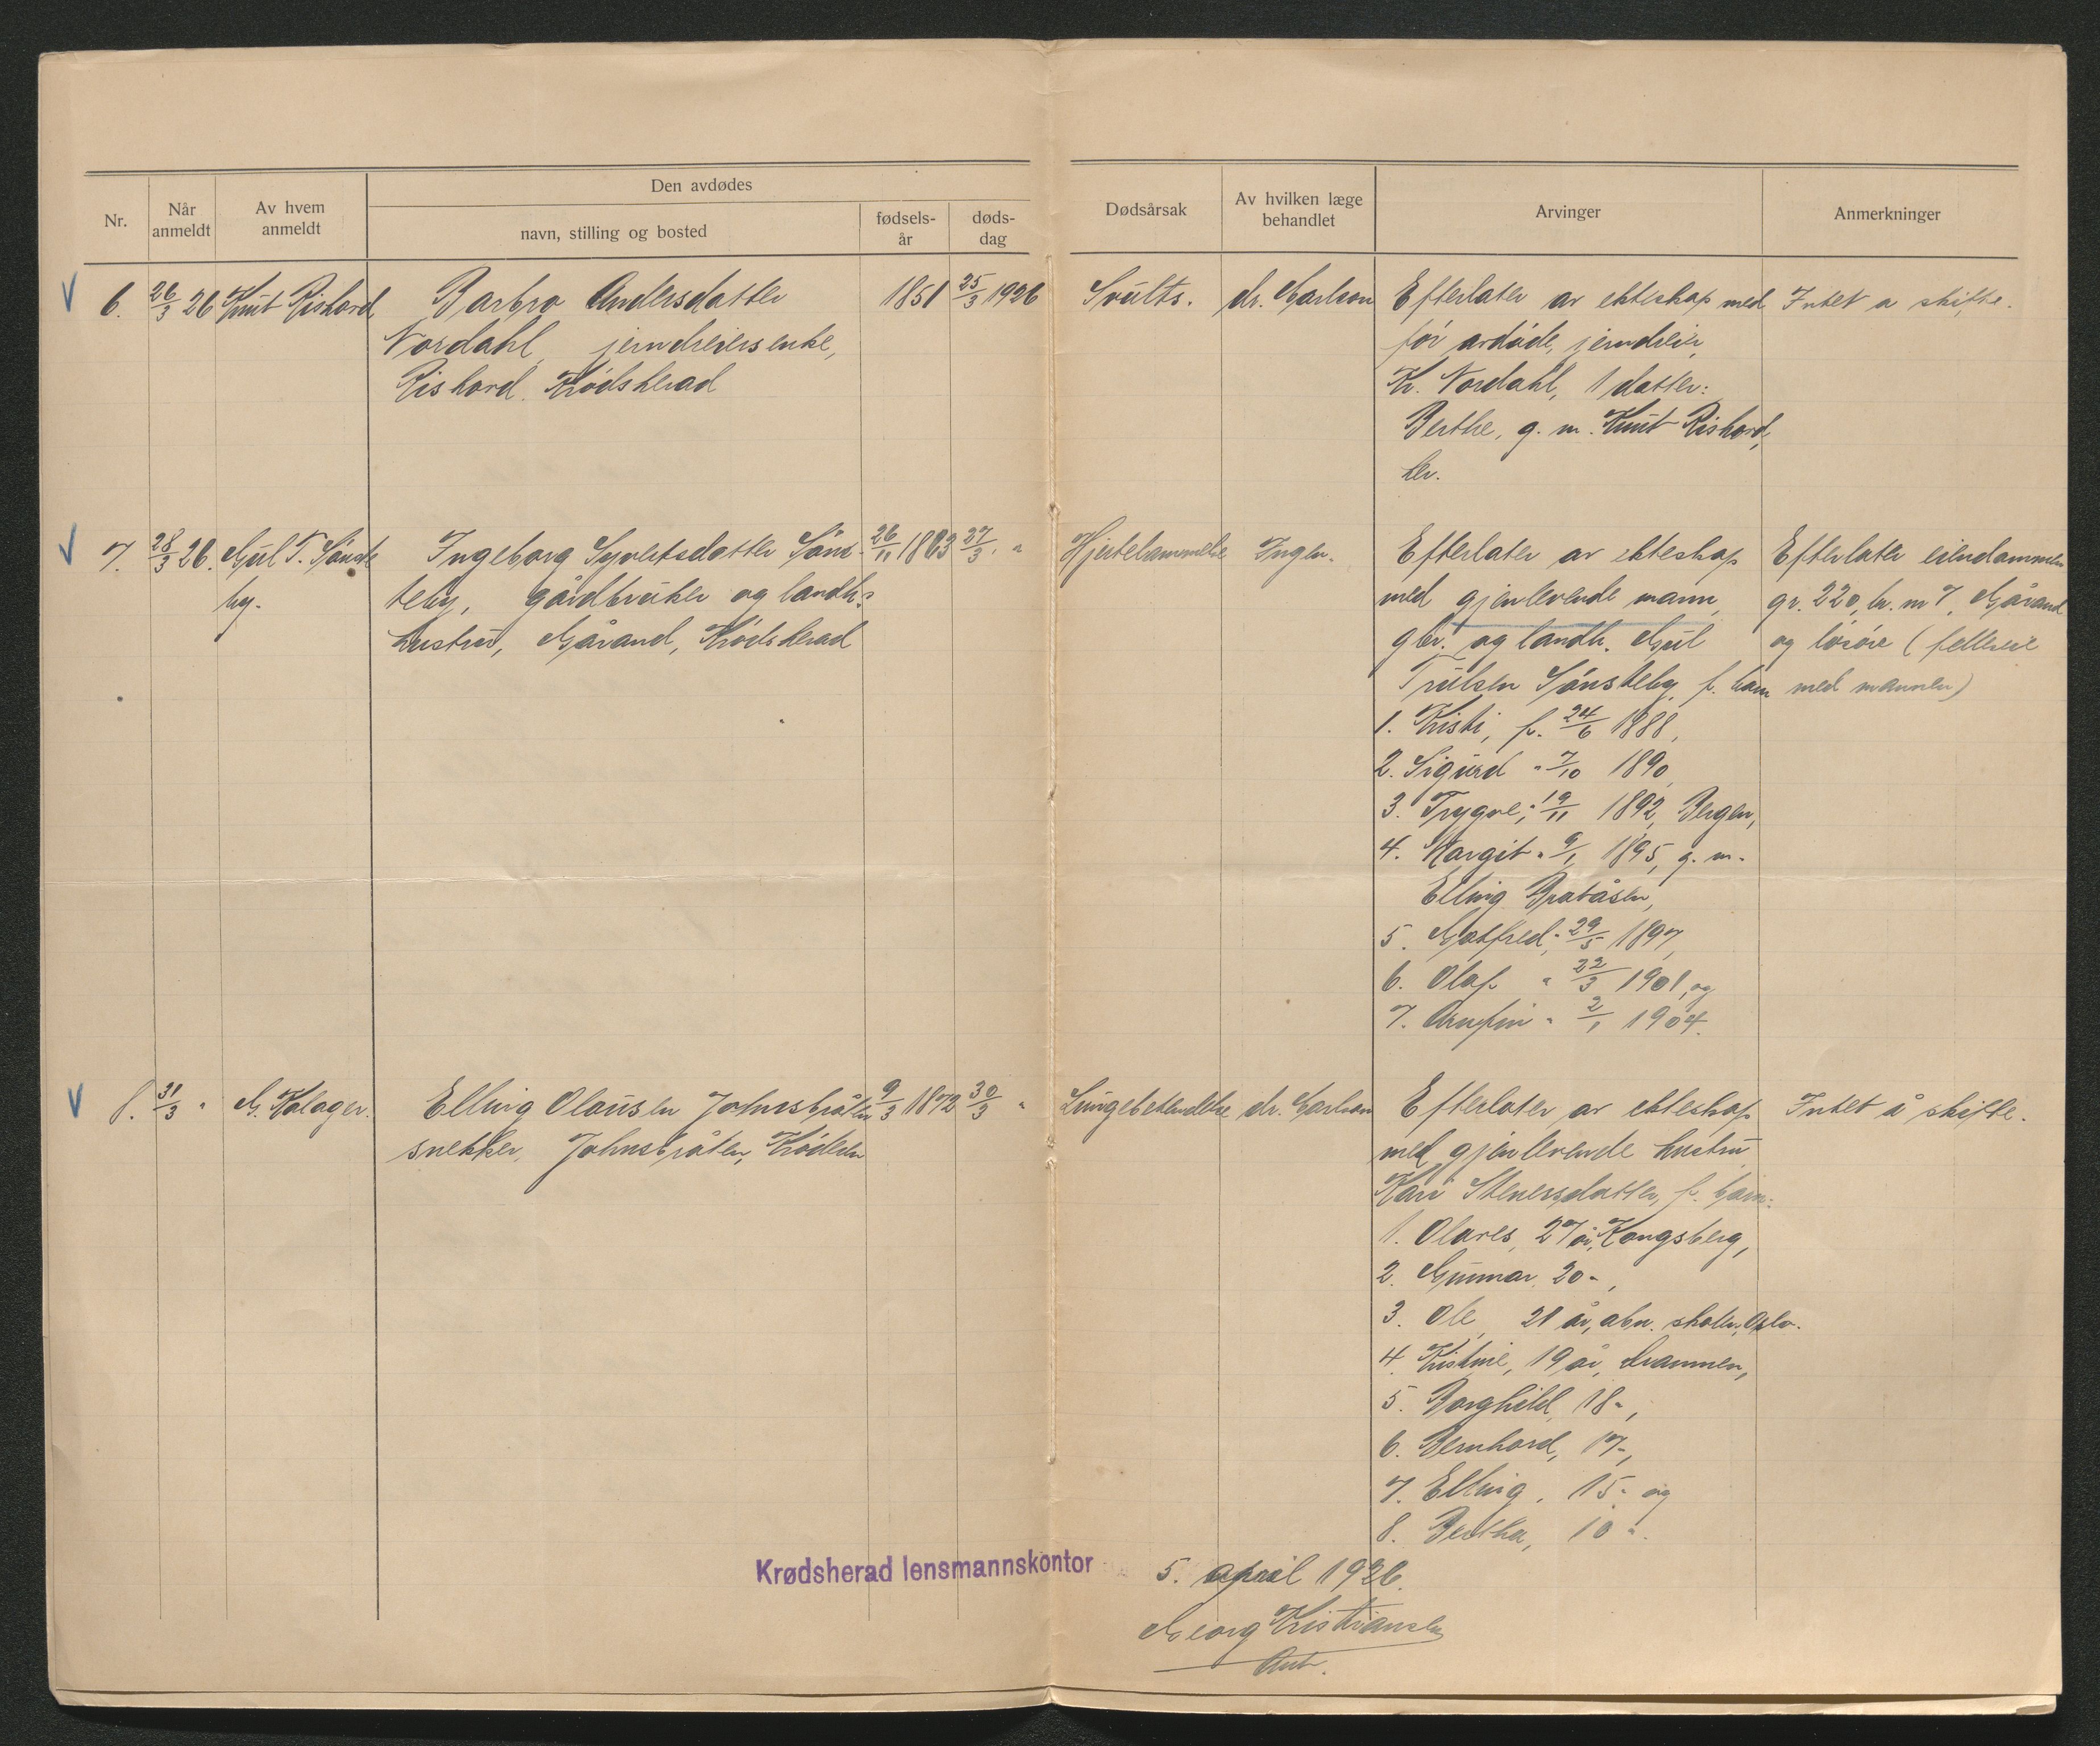 Den avdødes
Nr.
Når anmeldt
Av hvem anmeldt
navn, stilling og bosted
fødsels-år
døds-dag
Dødsårsak
Av hvilken læge behandlet
Arvinger
Anmerkninger
6. 26/3 26 Knut Rishovd Barbro Andersdatter 1851 25/3 1926 Svults. dr. Carlson Efterlater av ekteskap med Intet a skifte.
Nordahl, jerndreiersenke, før avdøde, jerndreier
Rishovd, Krødsherad Kr. Nordahl, 1 datter:
Berthe, g. m. Knut Rishovd,
her.
7. 28/3 26. Gul T. Sønste Ingeborg Syvertsdatter Søns- 26/11 1863 27/3 " Hjertelammelse Ingen. Efterlater av ekteskap Efterlater eiendommen
by. teby, gårdbruker og landh. med gjenlevende mann gr. 220, br. nr 7, Gårand
hustru, Gårand, Krødsherad gbr. og landh. Gul og løsøre (felleseie
Trulsen Sønsteby, f. barn med mannen)
1. Kristi, f. 24/6 1888,
2. Sigurd " 7/10 1890
3. Trygve, " 19/11 1892, Bergen,
4. Margit " 9/1 1895, g. m.
Elling Bråtåsen,
5. Gotfred, " 29/5 1897,
6. Olaf " 22/3 1901, og
7. Arnfin " 2/1 1904.
8. 31/3 " G. Kolager. Elling Olausen Johnsbråten 9/3 1872 30/3 " Lungebetendelse dr. Carlson Efterlater av ekteskap Intet å skifte.
snekker, Johnsbråten, Krøderen med gjenlevende hustru
Kari Steversdatter, f. barn:
1. Olaves, 27 år, Kongsberg,
2. Gunnar, 20 ",
3. Ole, 21 år, abn. skolen, Oslo.
4. Kristine, 19 år, Drammen,
5. Borghild, 18 ",
6. Bernhard, 17 ",
7. Elling, 15 " og
8. Berthe, 10 ".
Krødsherad lensmannskontor 5. april 1926.
Georg Kristiansen